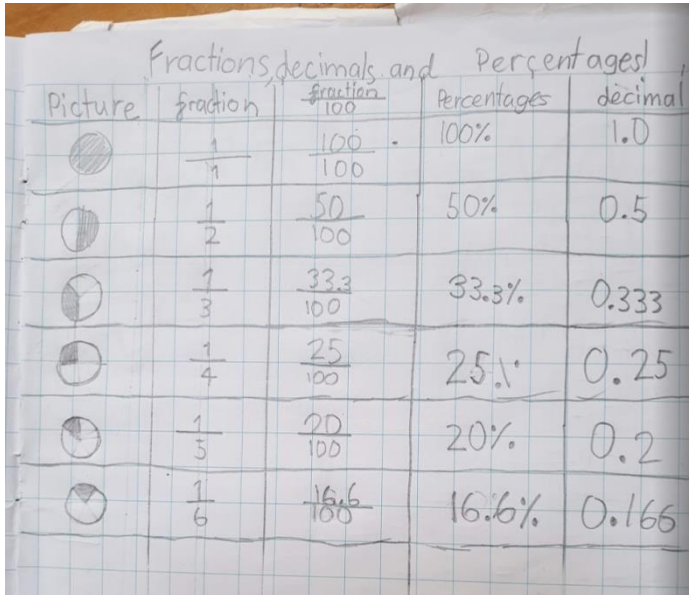 Fractions, decimals and Percentages!
Picture fraction fraction/100 Percentages decimal
1/1 100/100 100% 1.0
1/2 50/100 50% 0.5
1/3 33.3/100 33.3% 0.333
1/4 25/100 25% 0.25
1/5 20/100 20% 0.2
1/6 16.6/100 16.6% 0.166